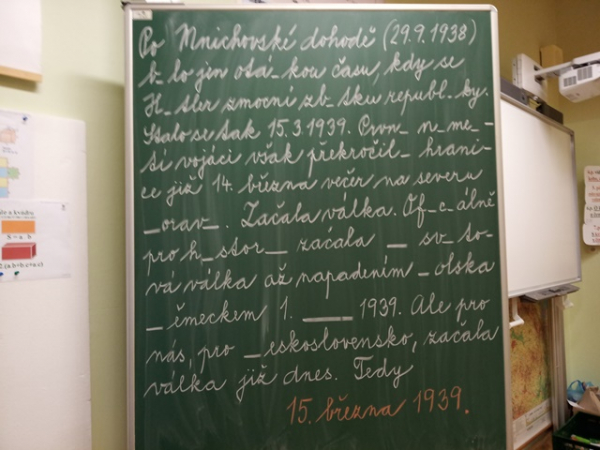 Po Mnichovské dohodě (29.9.1938)
b_lo jen otá_kou času, kdy se
H_tler zmocní zb_tku republ_ky.
Stalo se tak 15.3.1939. Prvn_ n_me_-
tí vojáci však překročil_ hrani-
ce již 14. března večer na severu
_orav_. Začala válka. Of_c_álně
pro h_stor_ začala _ sv_to-
vá válka až napadením _olska
_ěmeckem 1. ___ 1939. Ale pro
nás, pro _eskoslovensko, začala
válka již dnes. Tedy
15. března 1939.